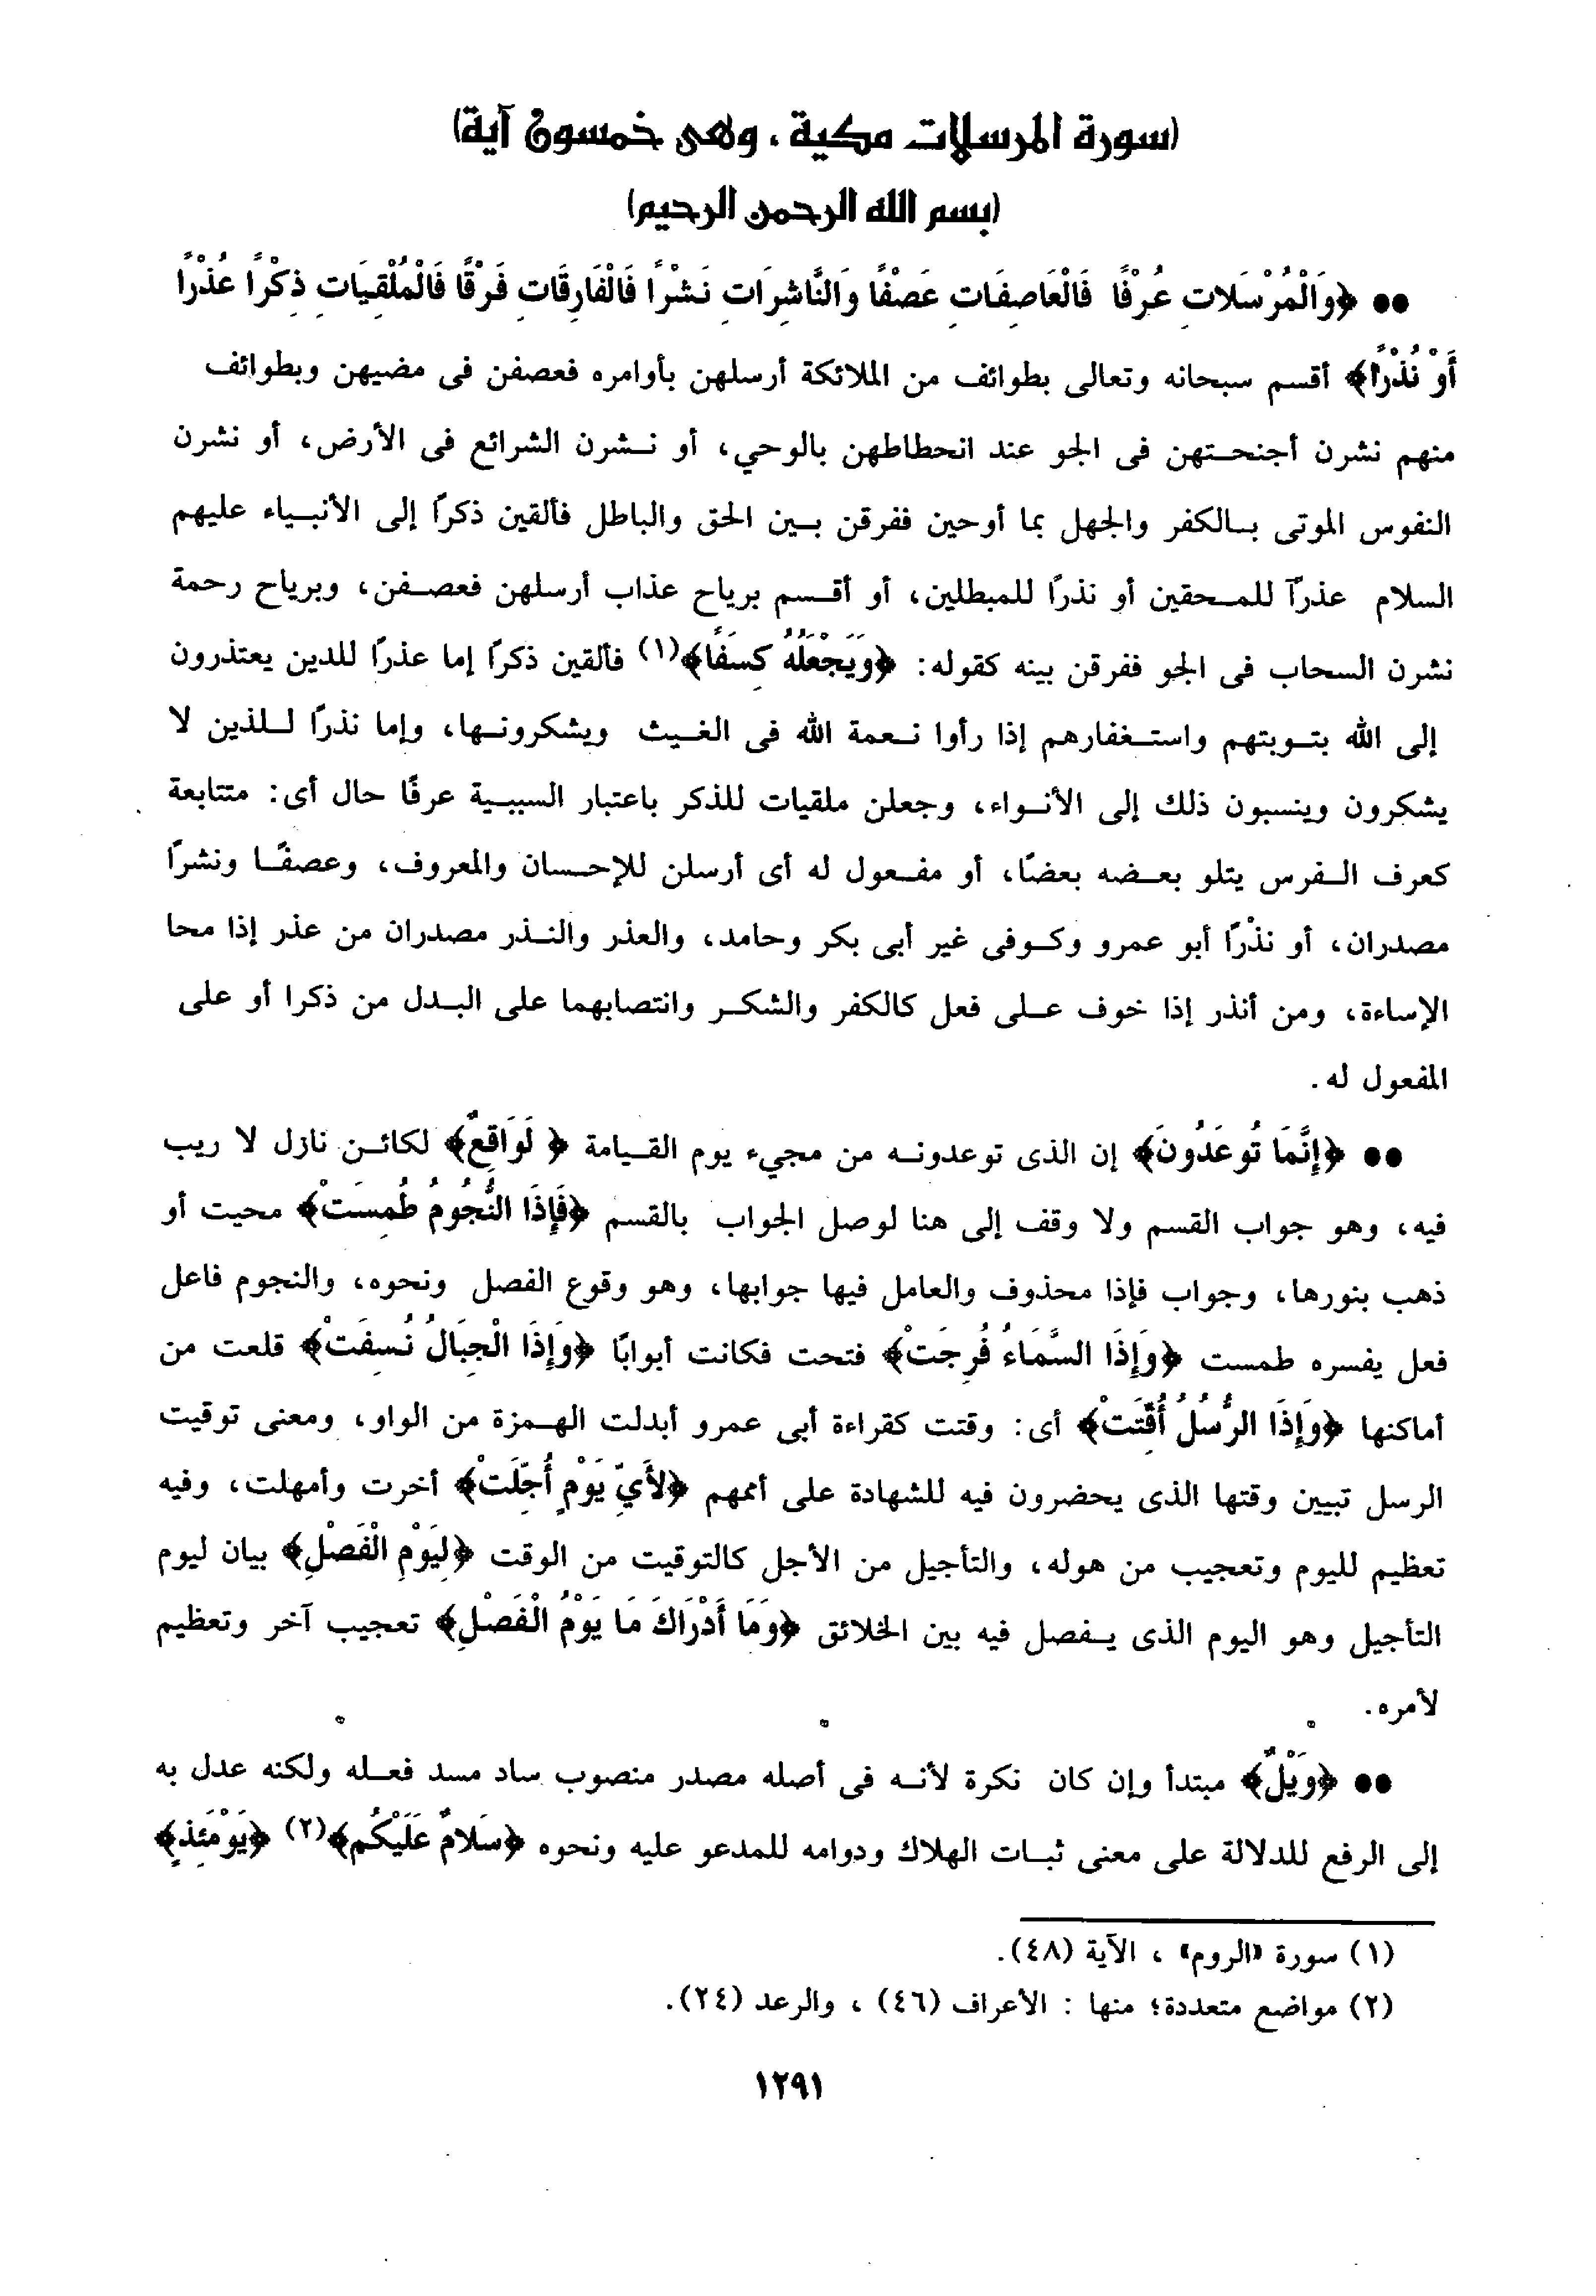 (سورة المرسلات مكية ، وهى خمسون آية)
(بسم الله الرحمن الرحيم)
●● ﴿وَالْمُرْسَلَاتِ عُرْفًا فَالْعَاصِفَاتِ عَصْفًا وَالنَّاشِرَاتِ نَشْرًا فَالْفَارِقَاتِ فَرْقًا فَالْمُلْقِيَاتِ ذِكْرًا عُذْرًا
أَوْ نُذْرًا﴾ أقسم سبحانه وتعالى بطوائف من الملائكة أرسلهن بأوامره فعصفن فى مضيهن وبطوائف
منهم نشرن أجنحتهن فى الجو عند انحطاطهن بالوحي، أو نشرن الشرائع فى الأرض، أو نشرن
النفوس الموتى بالكفر والجهل بما أوحين ففرقن بين الحق والباطل فألقين ذكرًا إلى الأنبياء عليهم
السلام عذرًا للمحقين أو نذرًا للمبطلين، أو أقسم برياح عذاب أرسلهن فعصفن، وبرياح رحمة
نشرن السحاب فى الجو ففرقن بينه كقوله: ﴿وَيَجْعَلُهُ كِسَفًا﴾(١) فألقين ذكرًا إما عذرًا للدين يعتذرون
إلى الله بتوبتهم واستغفارهم إذا رأوا نعمة الله فى الغيث ويشكرونها، وإما نذرًا للذين لا
يشكرون وينسبون ذلك إلى الأنواء، وجعلن ملقيات للذكر باعتبار السببية عرفًا حال أى: متتابعة
كعرف الفرس يتلو بعضه بعضًا، أو مفعول له أى أرسلن للإحسان والمعروف، وعصفًا ونشرًا
مصدران، أو نذْرًا أبو عمرو وكوفى غير أبى بكر وحامد، والعذر والنذر مصدران من عذر إذا محا
الإساءة، ومن أنذر إذا خوف على فعل كالكفر والشكر وانتصابهما على البدل من ذكرا أو على
المفعول له .
●● ﴿إِنَّمَا تُوعَدُونَ﴾ إن الذى توعدونه من مجيء يوم القيامة ﴿ لَوَاقِعٌ﴾ لكائن نازل لا ريب
فيه، وهو جواب القسم ولا وقف إلى هنا لوصل الجواب بالقسم ﴿فَإِذَا النُّجُومُ طُمِسَتْ﴾ محيت أو
ذهب بنورها، وجواب فإذا محذوف والعامل فيها جوابها، وهو وقوع الفصل ونحوه، والنجوم فاعل
فعل يفسره طمست ﴿وَإِذَا السَّمَاءُ فُرِجَتْ﴾ فتحت فكانت أبوابًا ﴿وَإِذَا الْجِبَالُ نُسِفَتْ﴾ قلعت من
أماكنها ﴿وَإِذَا الرُّسُلُ أُقِّتَتْ﴾ أى: وقتت كقراءة أبى عمرو أبدلت الهمزة من الواو، ومعنى توقيت
الرسل تبيين وقتها الذى يحضرون فيه للشهادة على أممهم ﴿لِأَيِّ يَوْمٍ أُجِّلَتْ﴾ أخرت وأمهلت، وفيه
تعظيم لليوم وتعجيب من هوله، والتأجيل من الأجل كالتوقيت من الوقت ﴿لِيَوْمِ الْفَصْلِ﴾ بيان ليوم
التأجيل وهو اليوم الذى يفصل فيه بين الخلائق ﴿وَمَا أَدْرَاكَ مَا يَوْمُ الْفَصْلِ﴾ تعجيب آخر وتعظيم
لأمره.
●● ﴿وَيْلٌ﴾ مبتدأ وإن كان نكرة لأنه فى أصله مصدر منصوب ساد مسد فعله ولكنه عدل به
إلى الرفع للدلالة على معنى ثبات الهلاك ودوامه للمدعو عليه ونحوه ﴿سَلَامٌ عَلَيْكُم﴾(٢) ﴿يَوْمَئِذٍ﴾
(١) سورة «الروم» ، الآية (٤٨).
(٢) مواضع متعددة؛ منها : الأعراف (٤٦) ، والرعد (٢٤).
١٢٩١